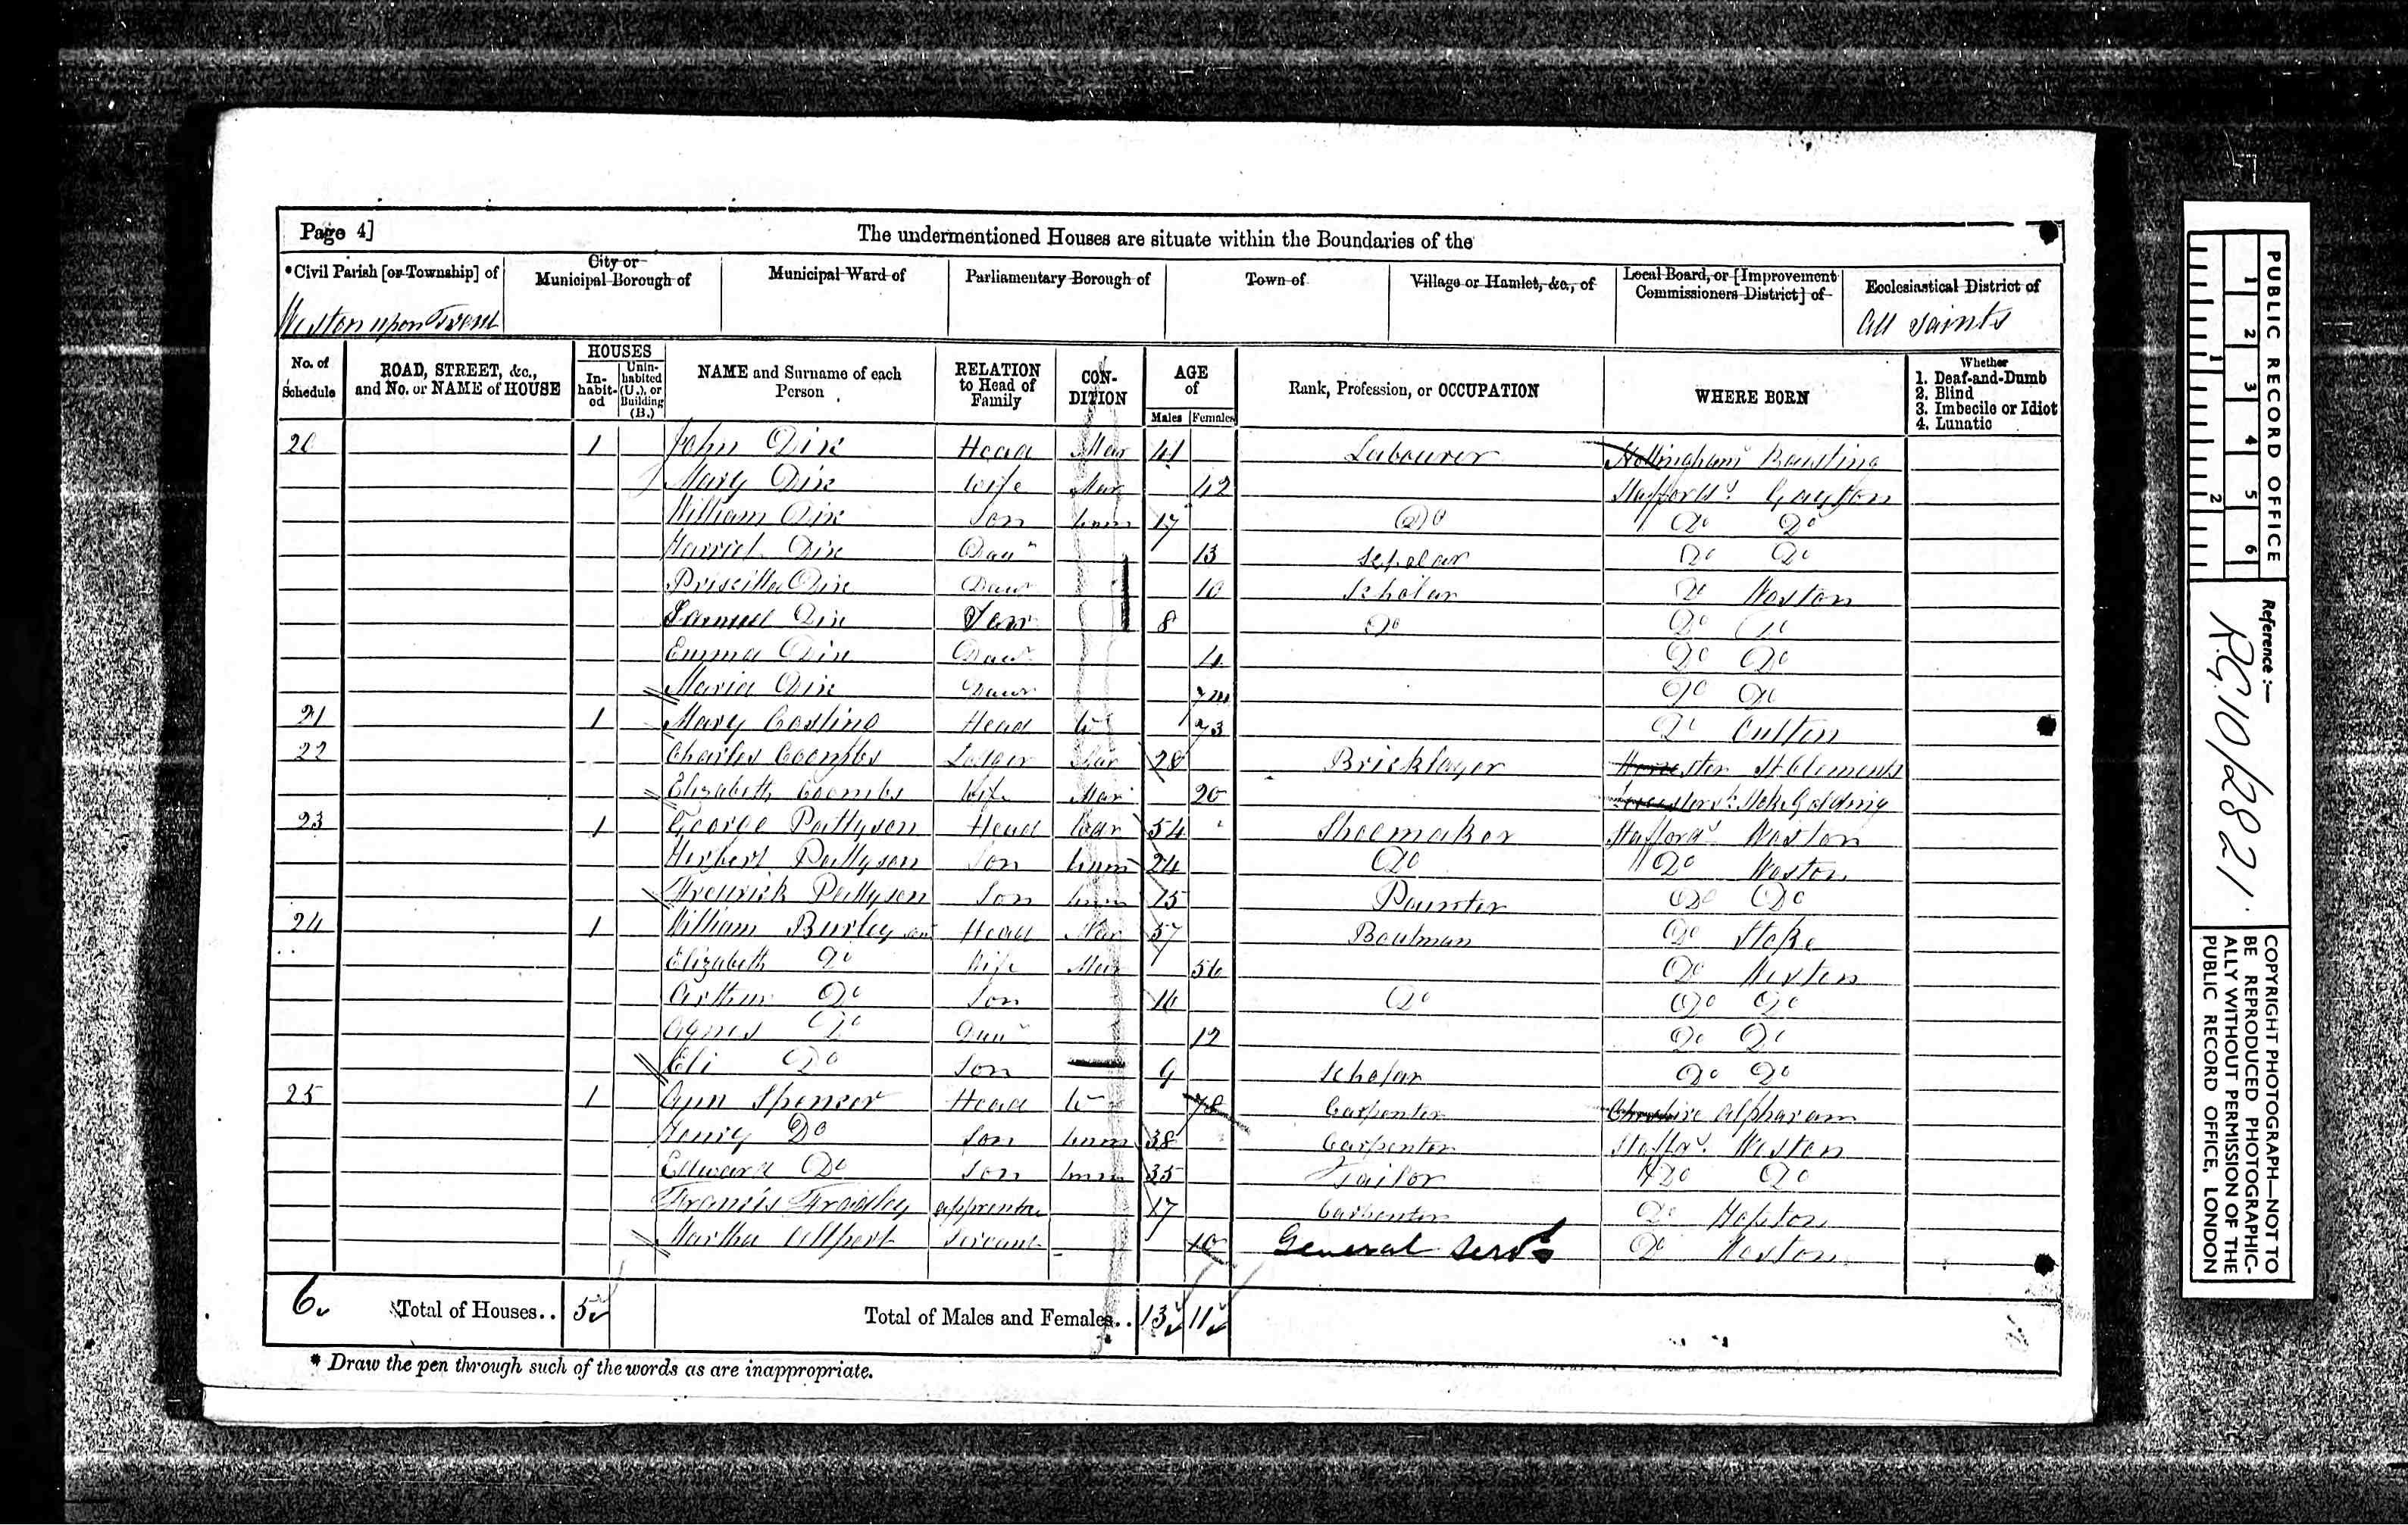 Page 4]
The undermentioned Houses are situate within the Boundaries of the
*Civil Parish [or Township] of
City or Municipal Borough of
Municipal Ward of
Parliamentary Borough of
Town of
Village or Hamlet, &c., of
Local Board, or [Improvement Commissioners District] of
Ecclesiastical District of
Weston upon Trent
All Saints
No. of Schedule
ROAD, STREET, &c., and No. or NAME of HOUSE
HOUSES
In-habit-ed
Unin-habited (U.), or Building (B.)
NAME and Surname of each Person
RELATION to Head of Family
CON-DITION
AGE of
Males
Females
Rank, Profession, or OCCUPATION
WHERE BORN
Whether
1. Deaf-and-Dumb
2. Blind
3. Imbecile or Idiot
4. Lunatic
20 1 John Dix Head Mar 41 Labourer
Mary Dix Wife Mar 42 Gayton
William Dix Son Unm 17 Do Do Do
Harriet Dix Daur 13 Scholar Do Do
Priscilla Dix Daur 10 Scholar Do Weston
Samuel Dix Son 8 Do Do Do
Emma Dix Daur 4 Do Do
Maria Dix Daur 7m Do Do
21 1 Mary Head W 73 Do
22 Charles Coombs Lodger Mar 28 Bricklayer St Clements
Elizabeth Coombs Wife Mar 20
23 1 George Pattyson Head 54 Shoemaker Staffords Weston
Herbert Pattyson Son Unm 24 Do Do Weston
Fredrick Pattyson Son Unm 15 Do Do
24 1 William Burley Head Mar 57 Boatman Do Stoke
Elizabeth Do Wife Mar 56 Do Weston
Arthur Do Son 16 Do Do Do
Agnes Do Daur 12 Do Do
Eli Do Son 9 Scholar Do Do
25 1 Ann Spencer Head W 78 Carpenter Cheshire Alpharam
Henry Do Son Unm 38 Carpenter Staffs. Weston
Edward Do Son Unm 35 Tailor Do Do
Francis Fradley apprentice 17 Carpenter Do
Martha Servant General Serv. Do Weston
6 Total of Houses.. 5
Total of Males and Females.. 13 11
* Draw the pen through such of the words as are inappropriate.
PUBLIC RECORD OFFICE
1 2 3 4 5 6
1 2
Reference :—
R.G. 10/2821.
COPYRIGHT PHOTOGRAPH—NOT TO
BE REPRODUCED PHOTOGRAPHIC-
ALLY WITHOUT PERMISSION OF THE
PUBLIC RECORD OFFICE, LONDON